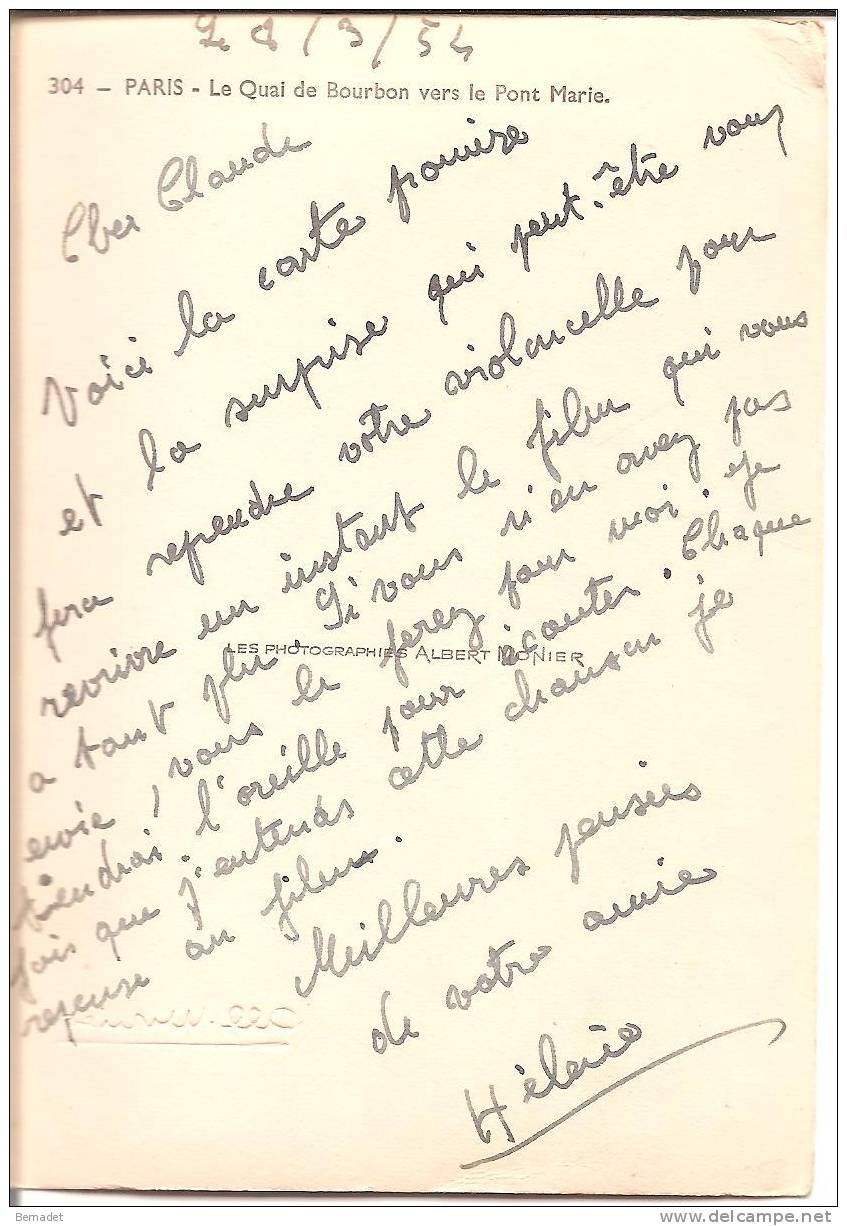 28/3/54
304 — PARIS - Le Quai de Bourbon vers le Pont Marie.
Cher Claude
Voici la carte promise
et la surprise qui peut-être vous
fera reprendre votre violoncelle pour
revivre un instant le film qui vous
a tant plu. Si vous n'en avez pas
envie, vous le ferez pour moi. Je
tiendrai l'oreille pour écouter. Chaque
fois que j'entends cette chanson je
repense au film.
Meilleures pensées
de votre amie
LES PHOTOGRAPHIES ALBERT MONIER
Bernadet
www.delcampe.net